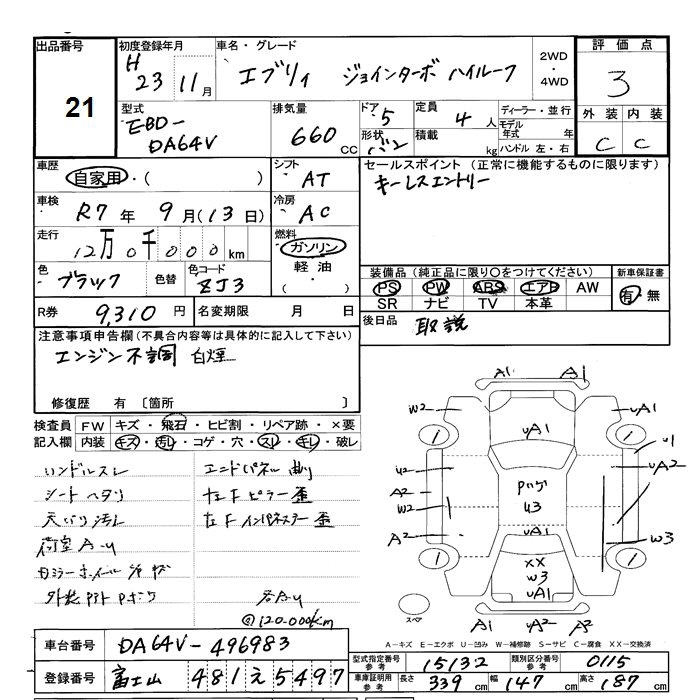 出品番号 21
初度登録年月 H 23 11月
車名・グレード エブリィ ジョインターボ ハイルーフ
2WD・4WD
評価点 3
外装 C 内装 C
型式 EBD-DA64V
排気量 660 CC
ドア 5
形状 バン
定員 4 人
積載 kg
ディーラー・並行
モデル年式 年
ハンドル 左・右
車歴 自家用・( )
シフト AT
セールスポイント (正常に機能するものに限ります)
キーレスエントリー
車検 R7年 9月(13日)
冷房 AC
走行 12万0千000km
燃料 ガソリン 軽油・( )
色 ブラック 色替 色コード ZJ3
装備品 (純正品に限り○をつけてください)
新車保証書
PS PW ABS エアB AW
SR ナビ TV 本革
有・無
R券 9,310 円 名変期限 月 日
後日品 取説
注意事項申告欄 (不具合内容等は具体的に記入して下さい)
エンジン不調 白煙
修復歴 有 〔箇所 〕
検査員記入欄
FW キズ・飛石・ヒビ割・リペア跡・×要
内装 キズ・汚レ・コゲ・穴・スレ・キレ・破レ
ハンドルスレ エンドパネル曲り
シートヘタリ 左Fピラー歪
天バリ汚レ 左Fインパネステー歪
荷室A-u
@120.000km
A1 A1
W2 uA1 uA1
1 1
u2 u1
uA2
A2 Pハゲ
W2 u3
A2 uA1 W3
1 XX 1
W3
uA1
スペア
A1 uA2 A2
A-キズ E-エクボ U-凹み W-補修跡 S-サビ C-腐食 XX-交換済
車台番号 DA64V-496983
登録番号 富士山 481え5497
型式指定番号 参考 15132
類別区分番号 参考 0115
車庫証明用 参考 長さ 339 cm 幅 147 cm 高さ 187 cm